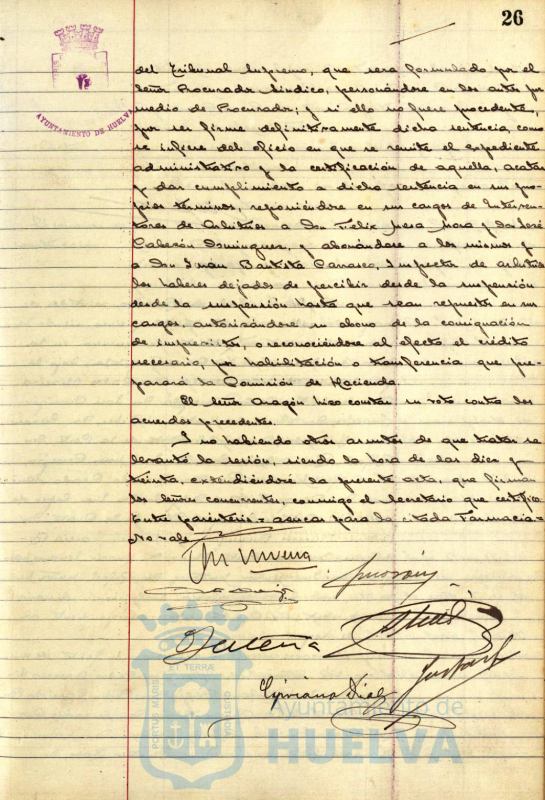 26
AYUNTAMIENTO DE HUELVA
del Tribunal Supremo, que sera formulado por el
Señor Procurador Sindico, personándose en los autos por
medio de Procurador; y si ello no fuere procedente,
por ser firme definitivamente dicha sentencia, como
se infiere del oficio en que se remite el expediente
administrativo y la certificación de aquella, acatar
y dar cumplimiento a dicha sentencia en sus pro-
pios terminos, reponiéndose en sus cargos de Interven-
tores de Arbitrios a Don Felix Mesa Mora y Don José
Calderón Dominguez, y abonándose a los mismos y
a Don Juan Bautista Carrasco, Inspector de arbitrios
los haberes dejados de percibir desde la suspensión
desde la suspensión hasta que sean repuestos en sus
cargos, autorizándose su abono de la consignación
de imprevistos, o reconociéndose al efecto el crédito
necesario, por habilitación o transferencia que pre-
parará la Comisión de Hacienda.
El señor Aragón hizo constar su voto contra los
acuerdos precedentes.
Y no habiendo otros asuntos de que tratar se
levantó la sesión, siendo la hora de las diez y
treinta, extendiéndose la presente acta, que firman
los señores concurrentes, conmigo el Secretario que certifico.
Entre parentesis = azucar para la citada Farmacia =
No vale
Cipriano Diaz
PORTUS MARIS ET TERRAE CUSTODIA
Ayuntamiento de
HUELVA